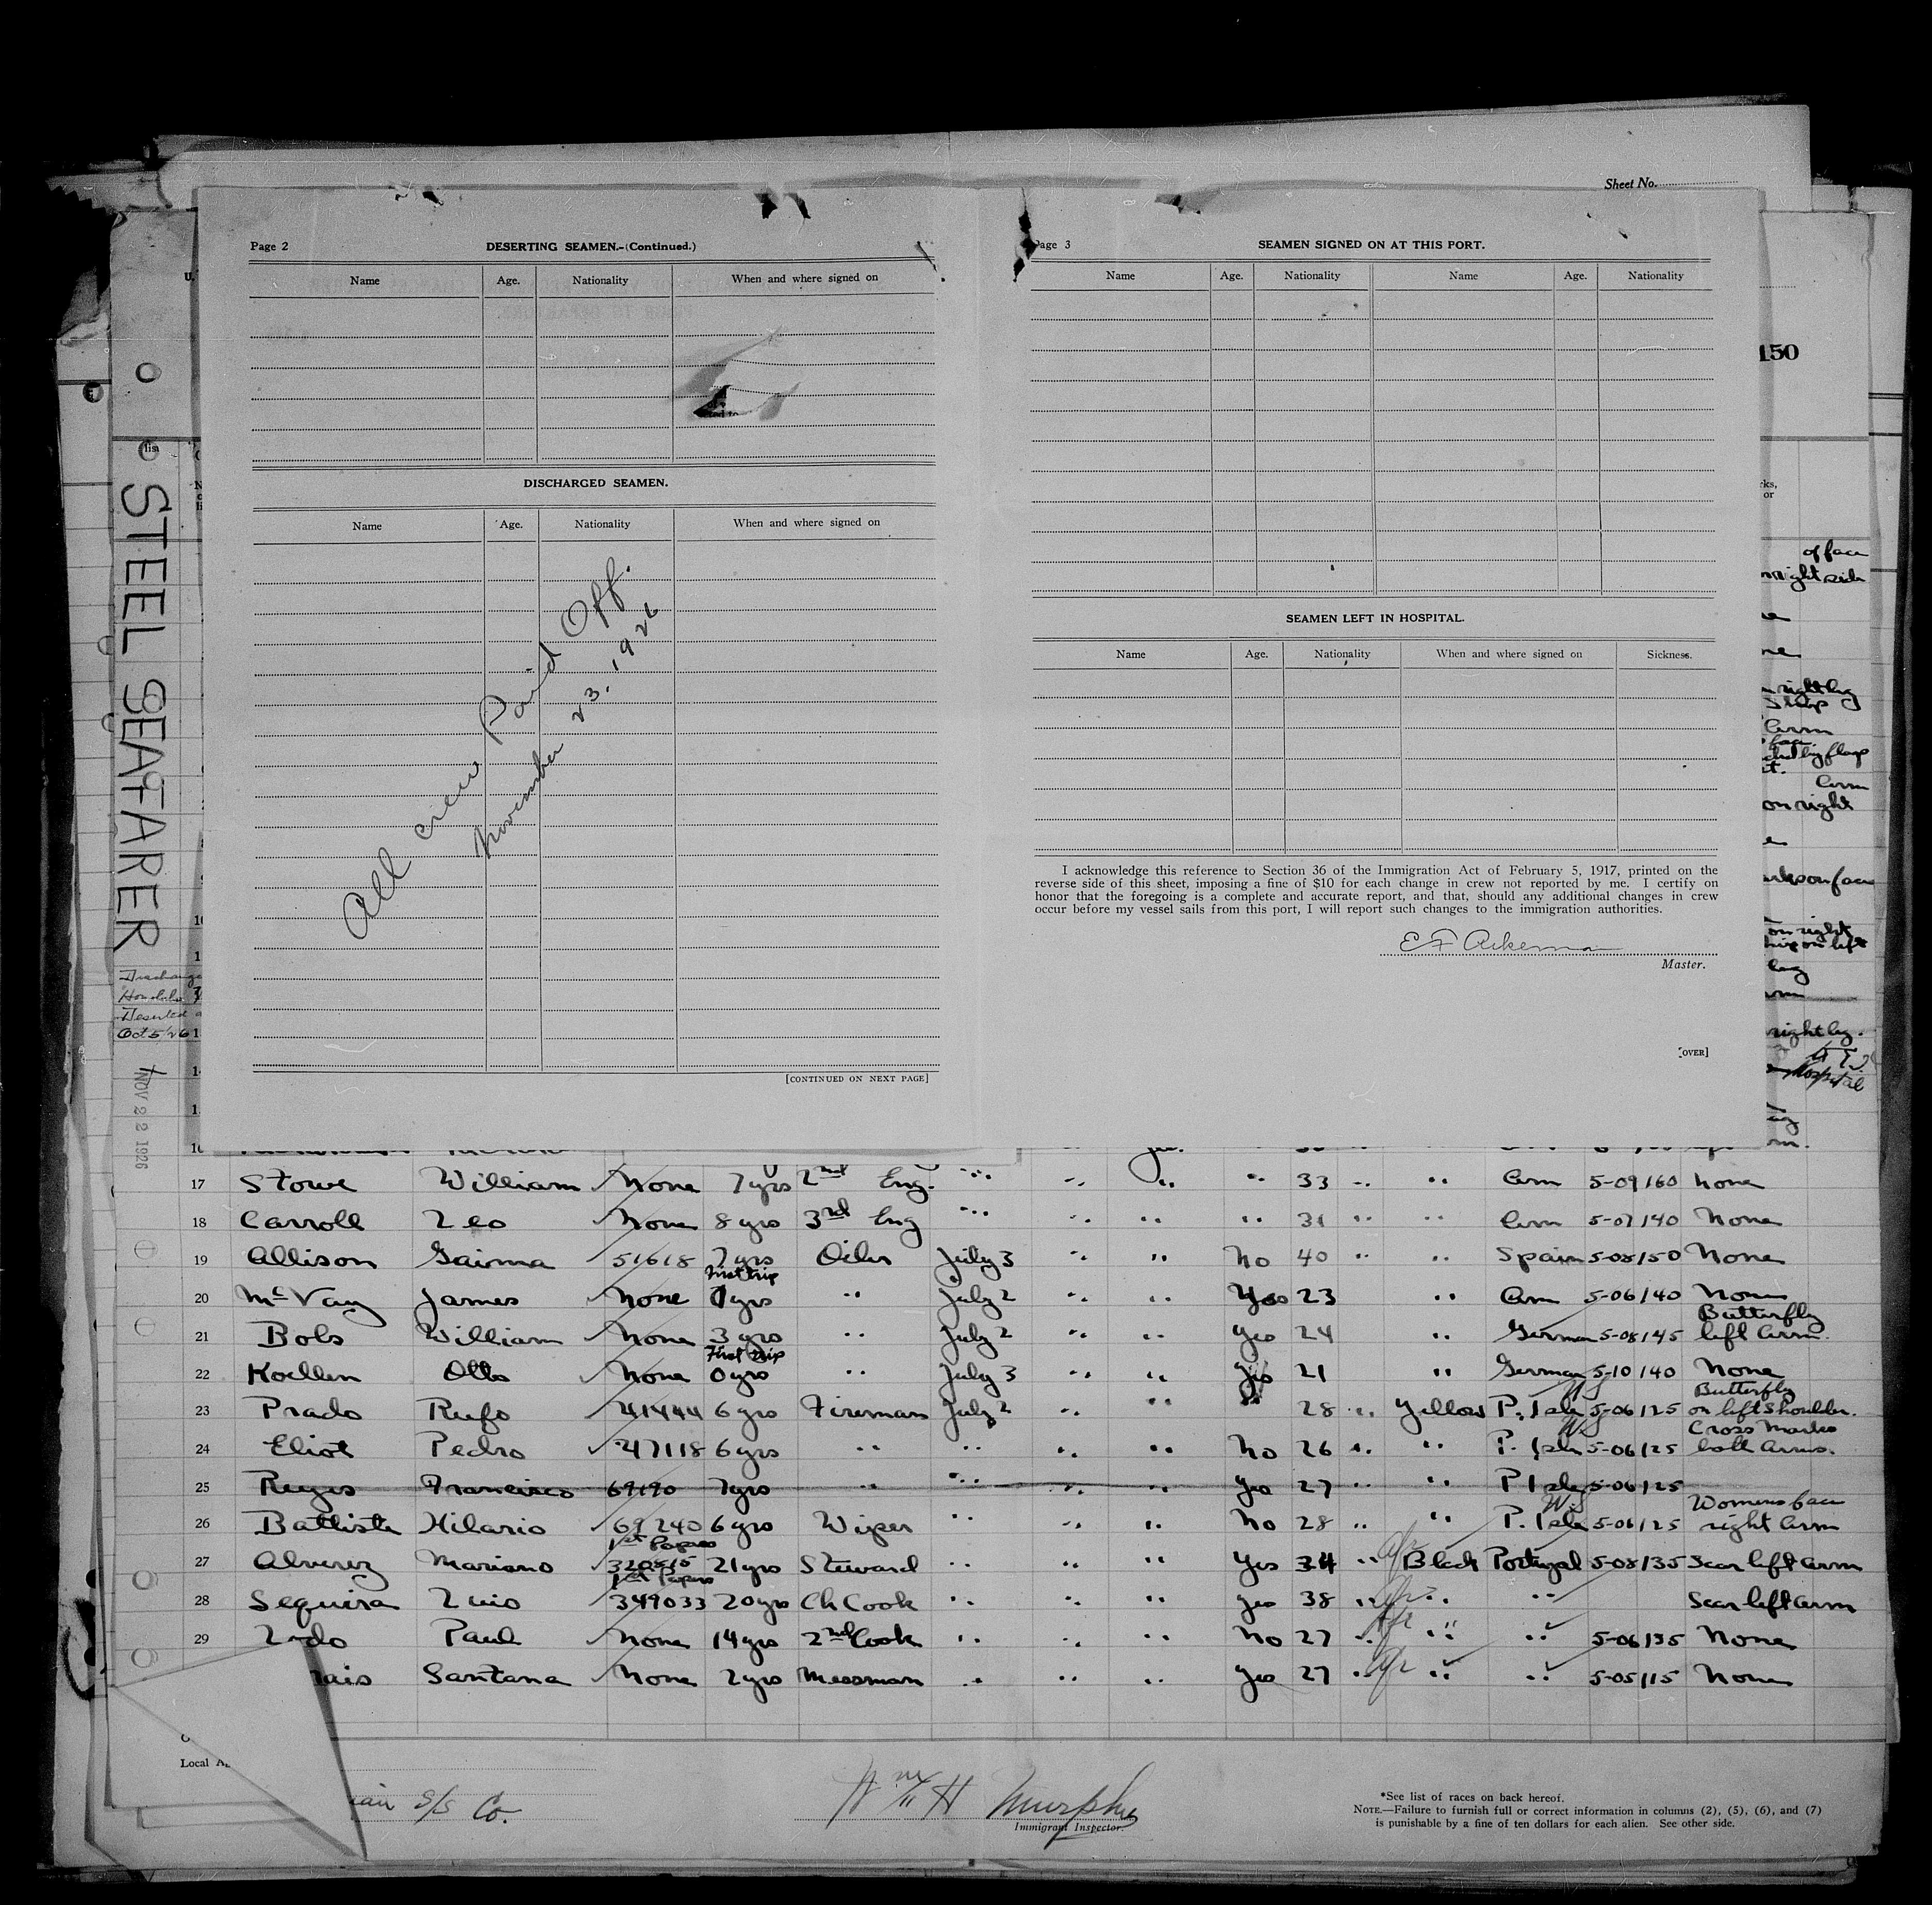 Sheet No.
Page 2
DESERTING SEAMEN.-(Continued.)
Name Age. Nationality When and where signed on
DISCHARGED SEAMEN.
Name Age. Nationality When and where signed on
All crew Paid Off.
November 23, 1926
[CONTINUED ON NEXT PAGE]
Page 3
SEAMEN SIGNED ON AT THIS PORT.
Name Age. Nationality Name Age. Nationality
SEAMEN LEFT IN HOSPITAL.
Name Age. Nationality When and where signed on Sickness.
I acknowledge this reference to Section 36 of the Immigration Act of February 5, 1917, printed on the
reverse side of this sheet, imposing a fine of $10 for each change in crew not reported by me. I certify on
honor that the foregoing is a complete and accurate report, and that, should any additional changes in crew
occur before my vessel sails from this port, I will report such changes to the immigration authorities.
E F Ackerman
Master.
[OVER]
150
STEEL SEAFARER
Honolulu
Deserted
Oct 5/26
NOV 22 1926
of face
right side
right leg
arm
on right
on right
on left
leg
right leg.
Hospital
17 Stowe William None 7 yrs 2nd Eng. " " " " 33 " " Am 5-09 160 None
18 Carroll Leo None 8 yrs 3rd Eng " " " " 31 " " Am 5-07 140 None
19 Allison Gairma 51618 7 yrs Oiler July 3 " " No 40 " " Spain 5-08 150 None
First trip
20 McVay James None 0 yrs " July 2 " " Yes 23 " Am 5-06 140 None
Butterfly
21 Bols William None 3 yrs " July 2 " " Yes 24 " German 5-08 145 left arm.
First trip
22 Koellen Otto None 0 yrs " July 3 " " Yes 21 " German 5-10 140 None
Butterfly
23 Prado Rufo 41444 6 yrs Fireman July 2 " " " 28 " Yellow P. Isle 5-06 125 on left shoulder.
Cross Marks
24 Eliot Pedro 47118 6 yrs " " " " No 26 " " P. Isle 5-06 125 both arms.
25 Reyes Francisco 69190 7 yrs " " " " Yes 27 " " P Isle 5-06 125
Womens face
26 Battista Hilario 69240 6 yrs Wiper " " " No 28 " " P. Isle 5-06 125 right arm
1st Papers
27 Alverez Mariano 320515 21 yrs Steward " " " Yes 34 " Black Portugal 5-08 135 Scar left arm
1st Papers
28 Sequira Luis 349033 20 yrs Ch Cook " " " Yes 38 " " " Scar left arm
29 Paul None 14 yrs 2nd Cook " " " No 27 " " " 5-06 135 None
Santana None 2 yrs Messman " " " Yes 27 " " " 5-05 115 None
S/S Co.
Wm H Murphy
Immigrant Inspector.
*See list of races on back hereof.
NOTE.—Failure to furnish full or correct information in columns (2), (5), (6), and (7)
is punishable by a fine of ten dollars for each alien. See other side.